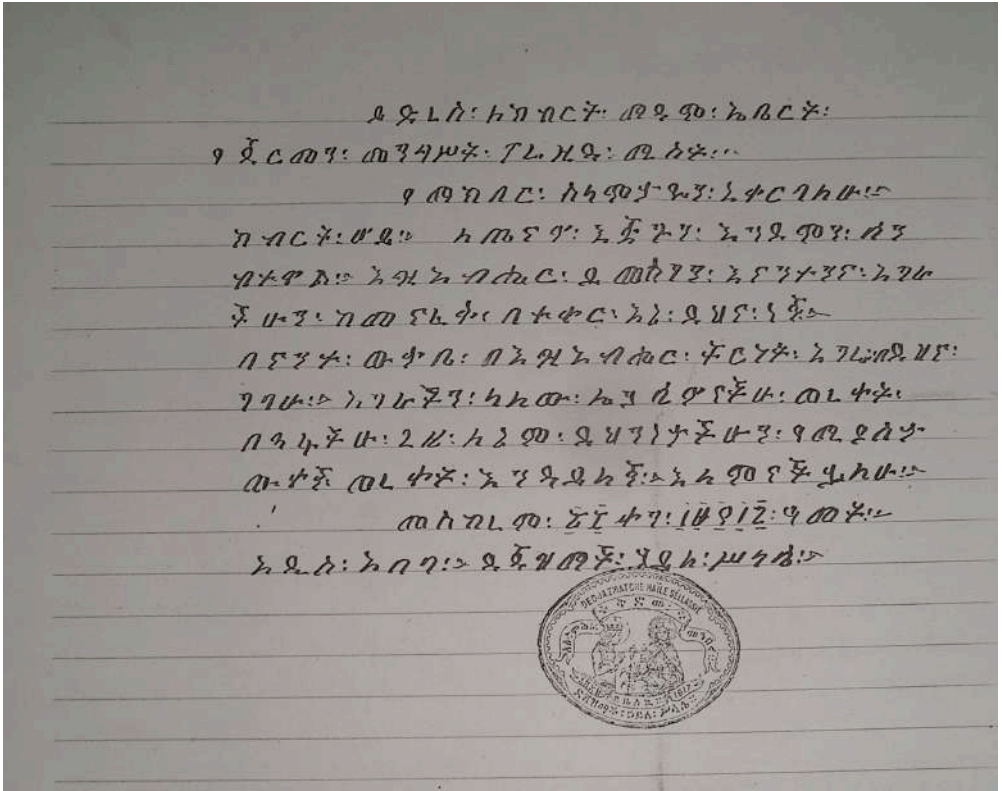 ይድረስ፡ ለክብርት፡ ማዳም፡ ኤቤርት፡
የጀርመን፡ መንግሥት፡ ፕሬዚዳ፡ ሚስት፡፡
የማክበር፡ ሰላምታዬን፡ አቀርባለሁ፡፡
ክብርት፡ ሆይ፡፡ እጅግን፡ እንደምን፡ ሰን
ብተዋል፡፡ እግዚአብሔር፡ ይመስገን፡ እናንተንና፡ አገራ
ችሁን፡ ከመናፈቄ፡ በተቀር፡ እኔ፡ ደህና፡ ነኝ፡፡
በናንተ፡ ውቃቤ፡ በእግዚአብሔር፡ ቸርነት፡ አገሬ፡ በደህና፡
ገባሁ፡፡ አገራችን፡ ካለው፡ ወረቀት፡
በጻፋችሁ፡ ጊዜ፡ ለኔም፡ ደህንነታችሁን፡ የሚያስታ
ውቀኝ ወረቀት፡ እለምናችኋለሁ፡፡
መስከረም፡ ቀን፡ ዓመት፡፡
አዲስ፡ አበባ፡፡ ደጃዝማች፡ ኃይለ፡ ሥላሴ፡፡
DEDJAZMATCHE HAILE SELLASSE